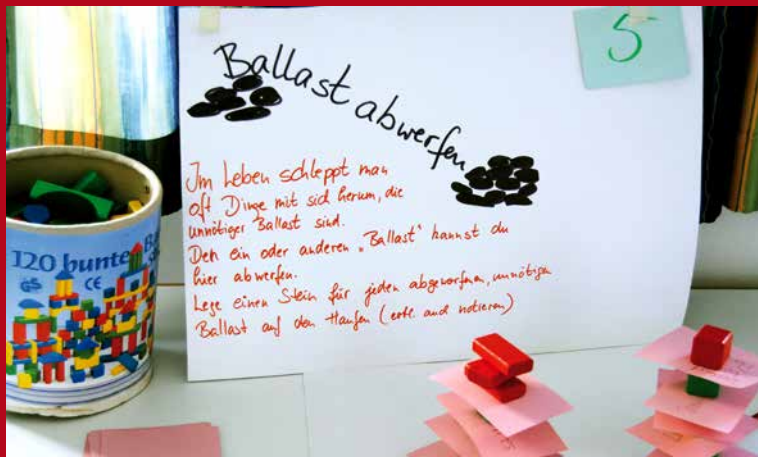 5
Ballast abwerfen
Im Leben schleppt man
oft Dinge mit sich herum, die
unnötiger Ballast sind.
Den ein oder anderen „Ballast" kannst du
hier abwerfen.
Lege einen Stein für jeden abgeworfenen, unnötigen
Ballast auf den Haufen (evtl. auch notieren)
120 bunte
GS CE